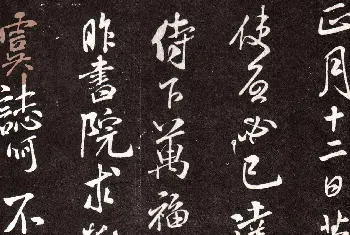 正月十二日
使必已達
侍下萬福
昨書院求
誌何不